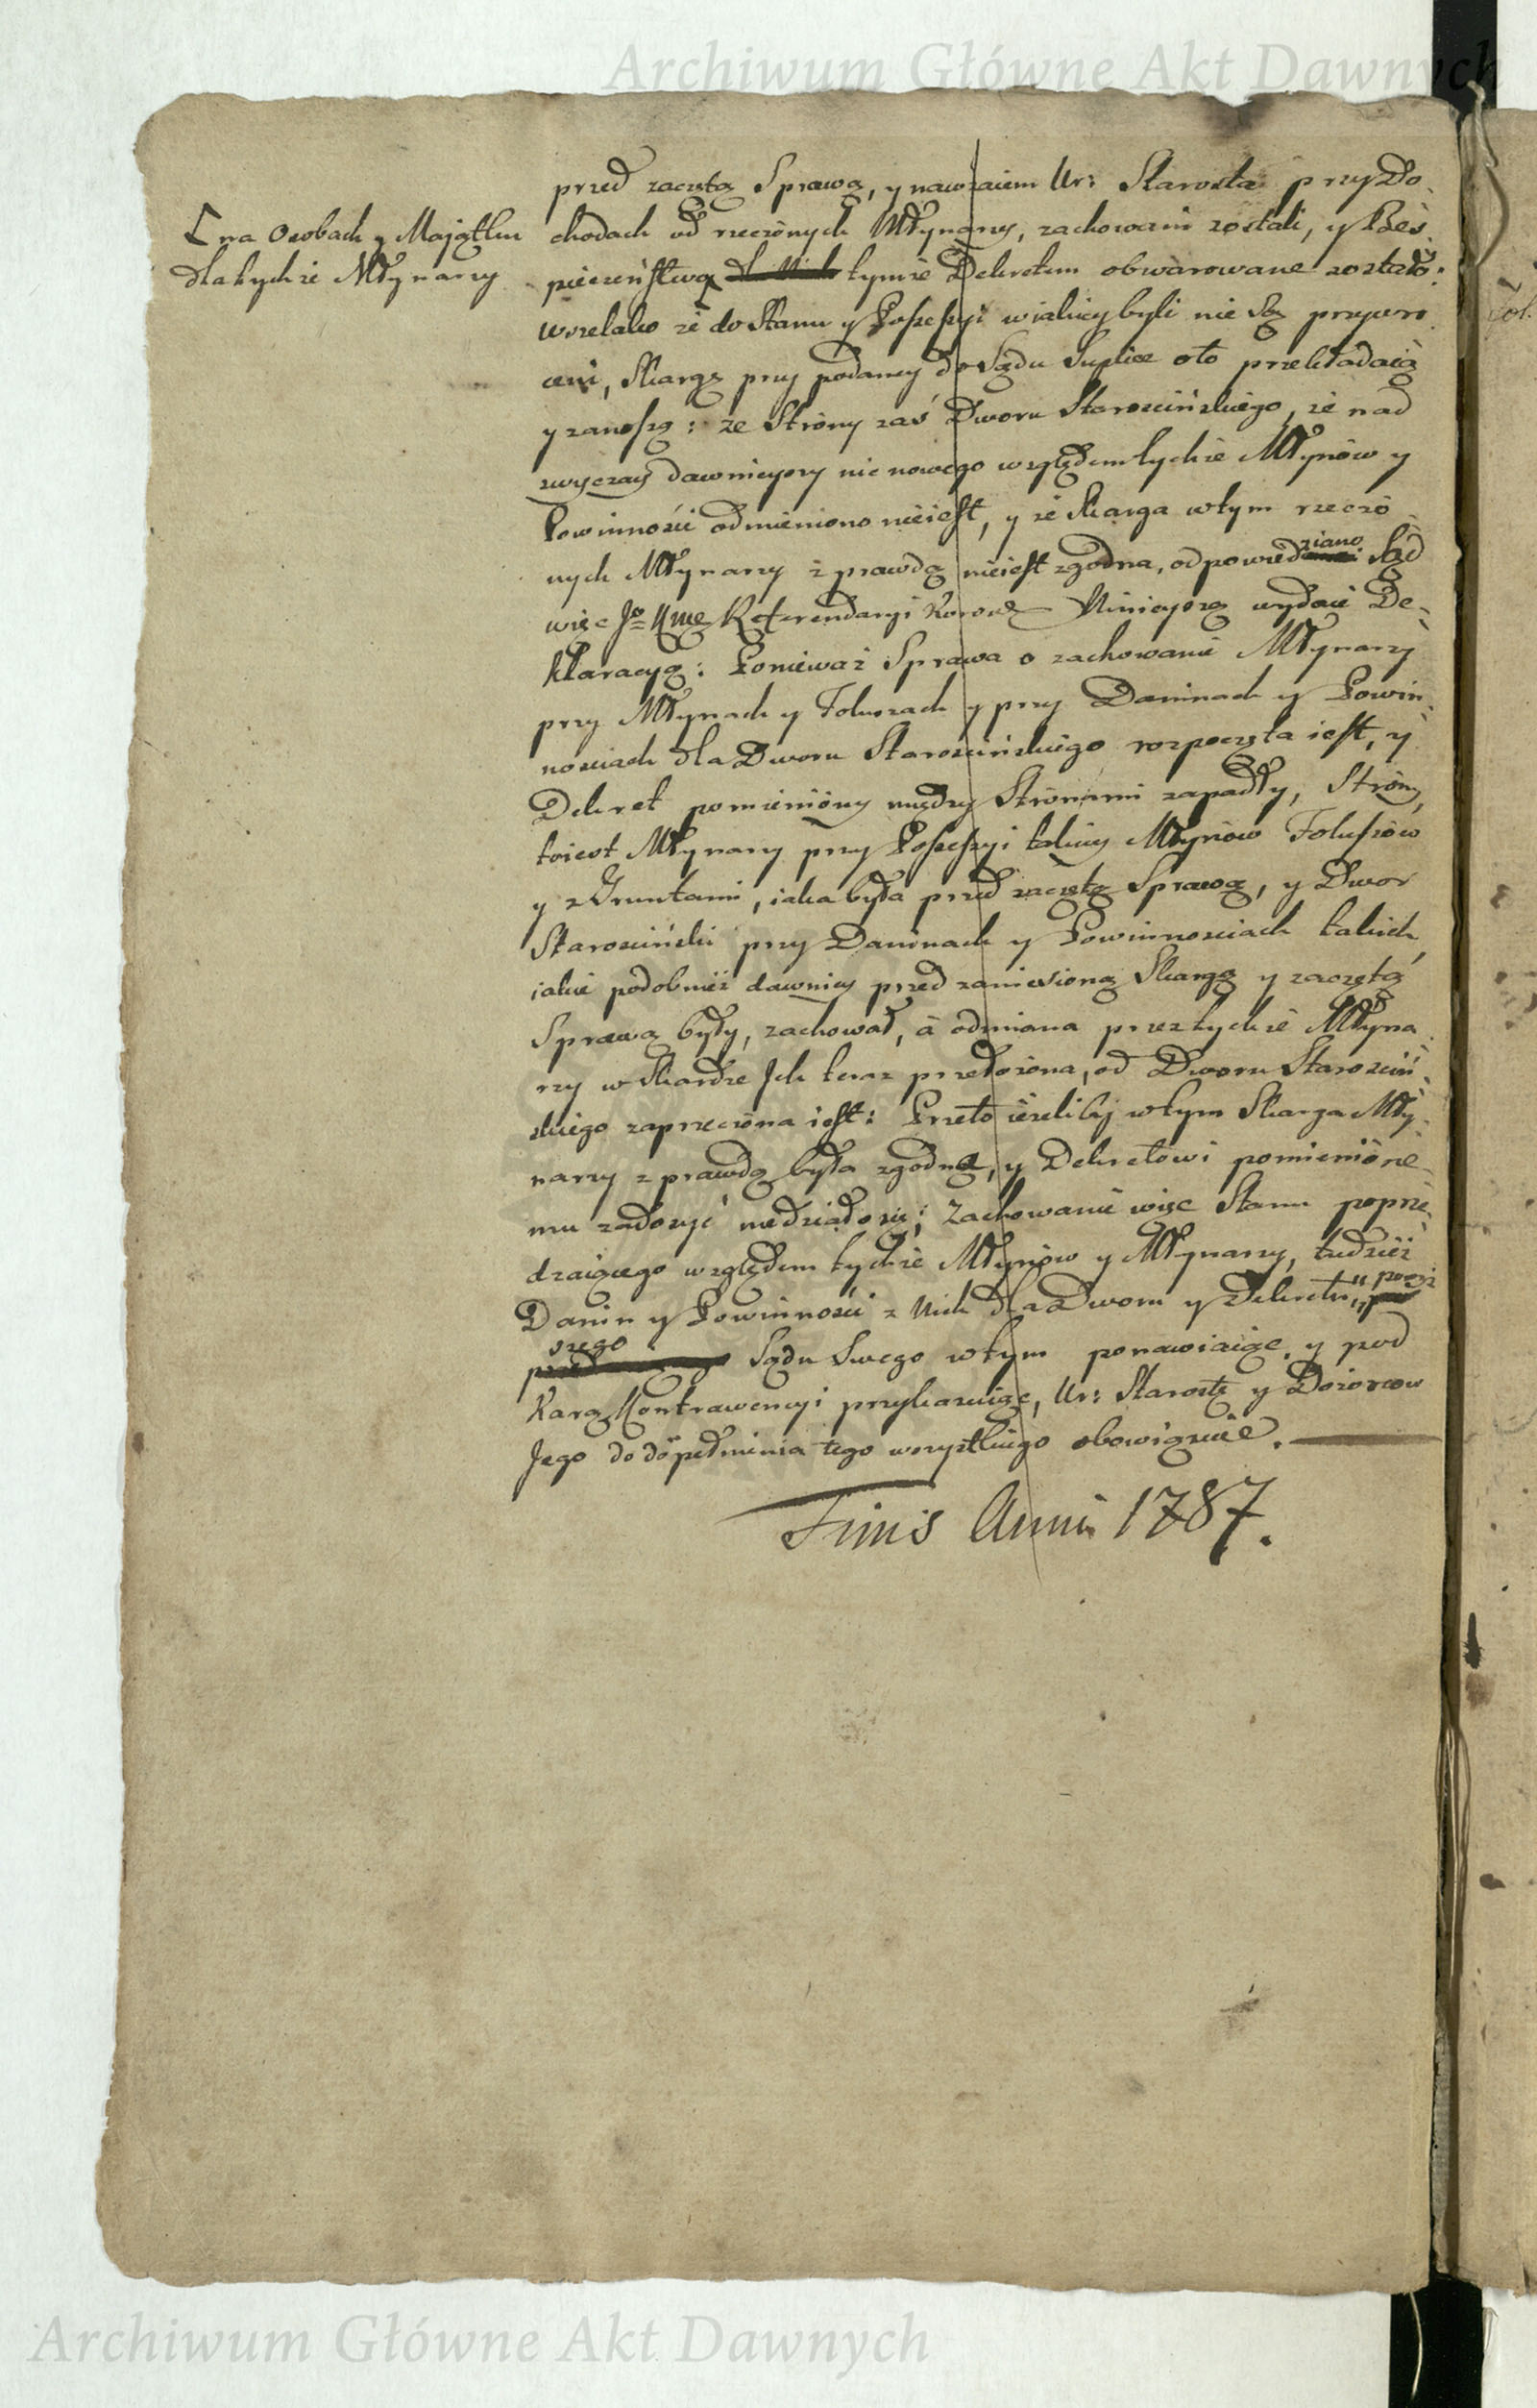 Archiwum Główne Akt Dawnych
przed zaczętą Sprawą, y nawzaiem Ur: Starosta przy Do-
chodach od rzeczonych Młynarzy, zachowani zostali, y Bes-
⌈ na Osobach y Majątku
dla tychże Młynarzy
pieczeństwo dla Nich tymże Dekretem obwarowane zostało:
wszelako że do Stanu y Possessyi w iakiey byli nie są przywro-
ceni, Skargę przy podaney do Sądu Suplice oto przekładaią
y zanoszą: ze Strony zaś Dworu Starościńskiego, że nad
zwyczay dawnieyszy nic nowego względem tychże Młynów y
Powinności odmieniono nieiest, y że Skarga w tym rzeczo-
nych Młynarzy z prawdą nieiest zgodna, odpowiedziano Sąd
więc J. Kmci Referendaryi Koronney Ninieyszą wydaie De-
klaracyą: Ponieważ Sprawa o zachowanie Młynarzy
przy Młynach y Foluszach y przy Daninach y Powin-
nościach dla Dworu Starościńskiego rozpoczęta iest, y
Dekret pomieniony między Stronami zapadły, Strony,
toiest Młynarzy przy Possessyi takiey Młynów Foluszów
y z Gruntami, iaka była przed zaczętą Sprawą, y Dwor
Starościński przy Daninach y Powinnościach takich,
iakie podobnież dawniey przed zaniesioną Skargą y zaczętą
Sprawą były, zachował, à odmiana przez tychże Młyna-
rzy w Skardze Ich teraz przełożona, od Dworu Starościń-
skiego zaprzeczona iest: Przeto ieżeliby w tym Skarga Mły-
narzy z prawdą była zgodna, y Dekretowi pomienione-
mu zadosyć niedziało się; Zachowanie więc Stanu poprze-
dzaiącego względem tychże Młynów y Młynarzy, tudzież
Danin y Powinności z Nich dla Dworu y Dekretu
szego Sądu Swego w tym ponawiaiąc, y pod
Karą Kontrawencyi przykazuiąc, Ur: Starostę y Dozorcow
Jego do dopełnienia tego wszystkiego obowiązuie.
Finis Anni 1787.
Archiwum Główne Akt Dawnych